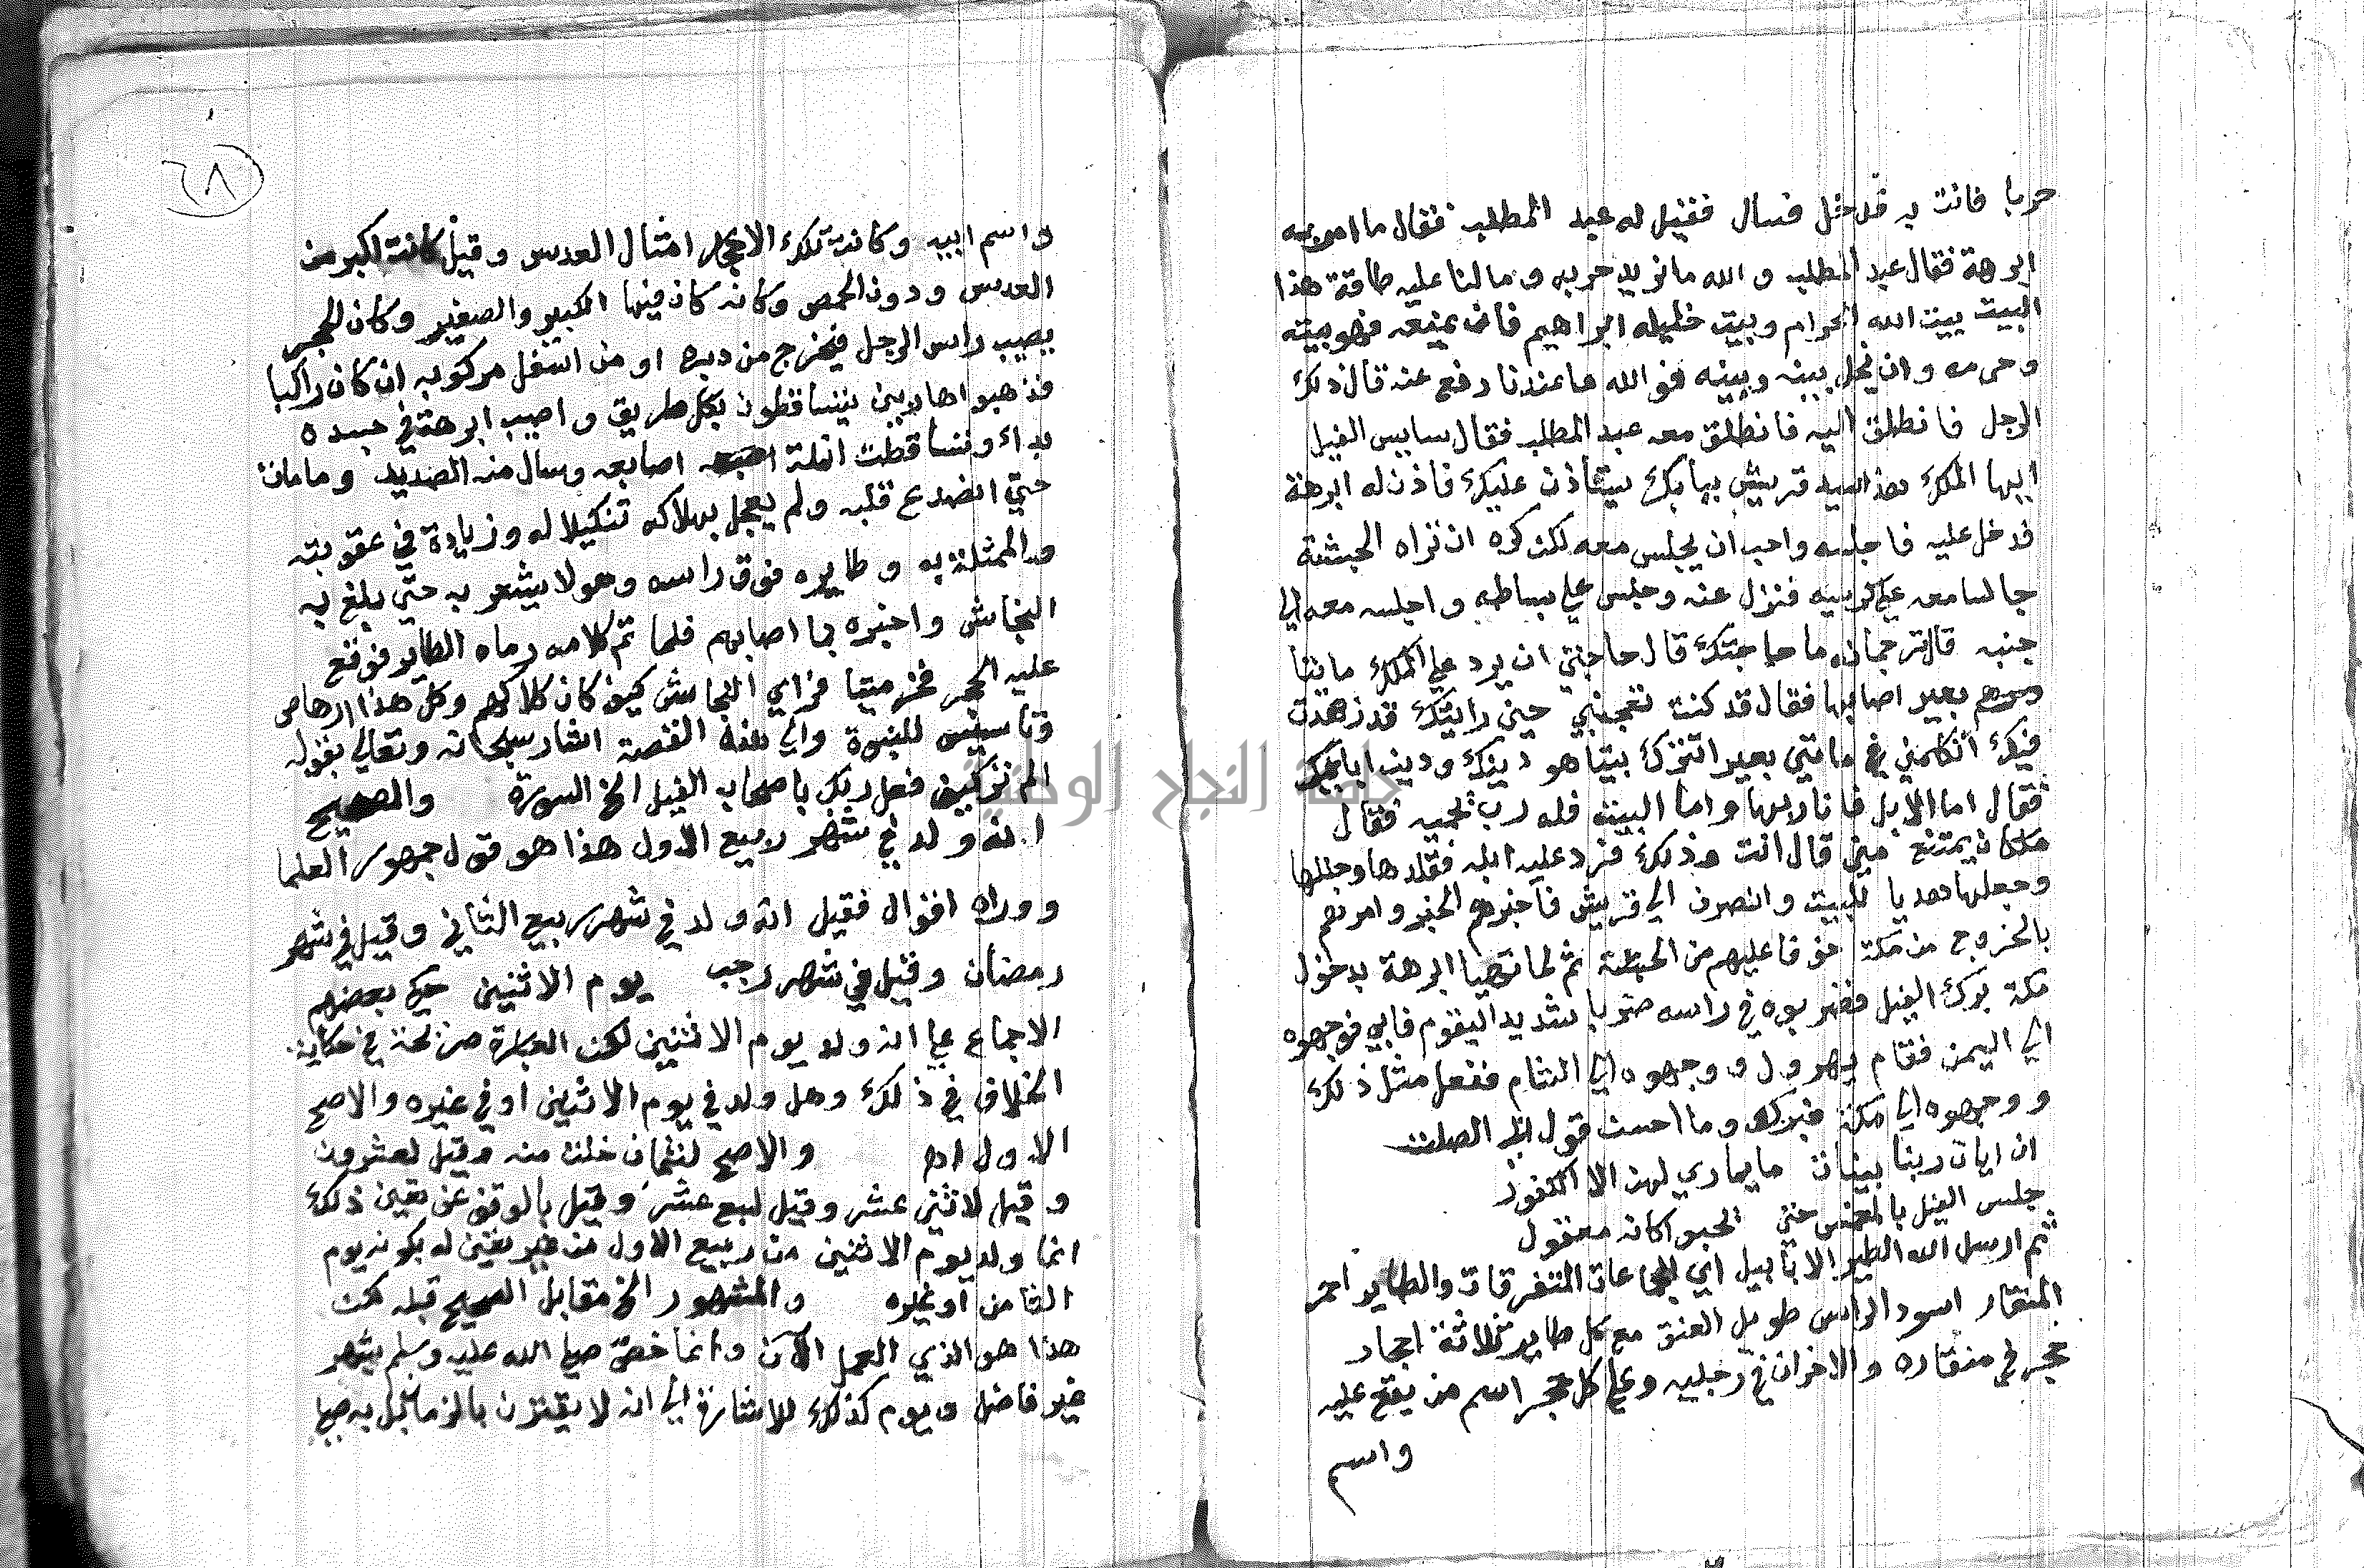 حربا فاتت به فدخل فسأل فقيل له عبد المطلب فقال ما امر به
ابرهة فقال عبد المطلب والله ما نريد حربه وما لنا عليه طاقة هذا
البيت بيت الله الحرام وبيت خليله ابراهيم فان يمنعه فهو بيته
وحرمه وان يخل بينه وبينه فوالله ما عندنا دفع عنه قال ذلك
الرجل فانطلق اليه فانطلق معه عبد المطلب فقال سايس الفيل
ايها الملك هذا سيد قريش ببابك يستأذن عليك فاذن له ابرهة
فدخل عليه فاجلسه واحب ان يجلس معه لكن كره ان تراه الحبشة
جالسا معه على كرسيه فنزل عنه وجلس على بساطه واجلسه معه الى
جنبه قال ترجمانه ما حاجتك قال حاجتي ان يرد علي الملك مايتا
بعير اصابها فقال قد كنت تعجبني حين رايتك قد زهدت
فيك اتكلمني في مائتي بعير اتترك بيتا هو دينك ودين ابايك
فقال اما الابل فانا ربها واما البيت فله رب يحميه فقال
ما كان يمتنع مني قال انت وذلك فرد عليه ابله فقلدها وجللها
وجعلها هديا للبيت وانصرف الى قريش فأخبرهم الخبر وامرهم
بالخروج من مكة خوفا عليهم من الحبشة ثم لما تهيا ابرهة بدخول
مكة برك الفيل فضربوه في راسه ضربا شديدا ليقوم فابي فوجهوه
الى اليمن فقام يهرول ووجهوه الى الشام ففعل مثل ذلك
ووجهوه الى مكة فبرك وما احسن قول ابي الصلت
ان ايات ربنا بينات ما يماري لهن الا الكفور
جلس الفيل بالمغمس حتي الحبو كانه معقول
ثم ارسل الله الطير الابابيل اي الجماعات المتفرقات والطاير احمر
المنقار اسود الراس طويل العنق مع كل طاير ثلاثة احجار
حجر في منقاره والاخران في رجليه وعلى كل حجر اسم من يقع عليه
واسم
٦٨
واسم ابيه وكانت تلك الاحجار امثال العدس وقيل كانت اكبر من
العدس ودون الحمص وكانه كان فيها الكبير والصغير وكان الحجر
يصيب راس الرجل فيخرج من دبره او من اسفل مركوبه ان كان راكبا
فذهبوا هاربين يتساقطون بكل طريق واصيب ابرهة في جسده
بداء وتساقطت انملة اصابعه وسال منه الصديد وما مات
حتى انصدع قلبه ولم يعجل بهلاكه تنكيلا له وزيادة في عقوبته
والمثلة به وطايره فوق راسه وهو لا يشعر به حتى بلغ به
النجاشي واخبره بما اصابهم فلما تم كلامه رماه الطاير فوقع
عليه الحجر فخر ميتا فراي النجاشي كيف كان هلاكهم وكل هذا ارهاص
وتاسيس للنبوة والى هذه القصة اشار سبحانه وتعالى بقوله
الم تر كيف فعل ربك باصحاب الفيل الخ السورة والصحيح
انه ولد في شهر ربيع الاول هذا هو قول جمهور العلما
ووراه اقوال فقيل انه ولد في شهر ربيع الثاني وقيل في شهر
رمضان وقيل في شهر رجب يوم الاثنين حكي بعضهم
الاجماع على انه ولد يوم الاثنين لكن العبارة صريحة في حكاية
الخلاف في ذلك وهل ولد في يوم الاثنين او في غيره والاصح
الاول اهـ والاصح لثمان خلت منه وقيل لعشرون
وقيل لاثني عشر وقيل لسبع عشر وقيل بالوقف عن تعين ذلك
انما ولد يوم الاثنين من ربيع الاول من غير تعين له بكونه يوم
الثامن او غيره والمشهور الخ مقابل الصحيح قبله لكن
هذا هو الذي العمل الآن وانما خص صلى الله عليه وسلم بشهر
غير فاضل ويوم كذلك للاشارة الى انه لا يقترن بالزما بل به صلى
جامعة النجاح الوطنية